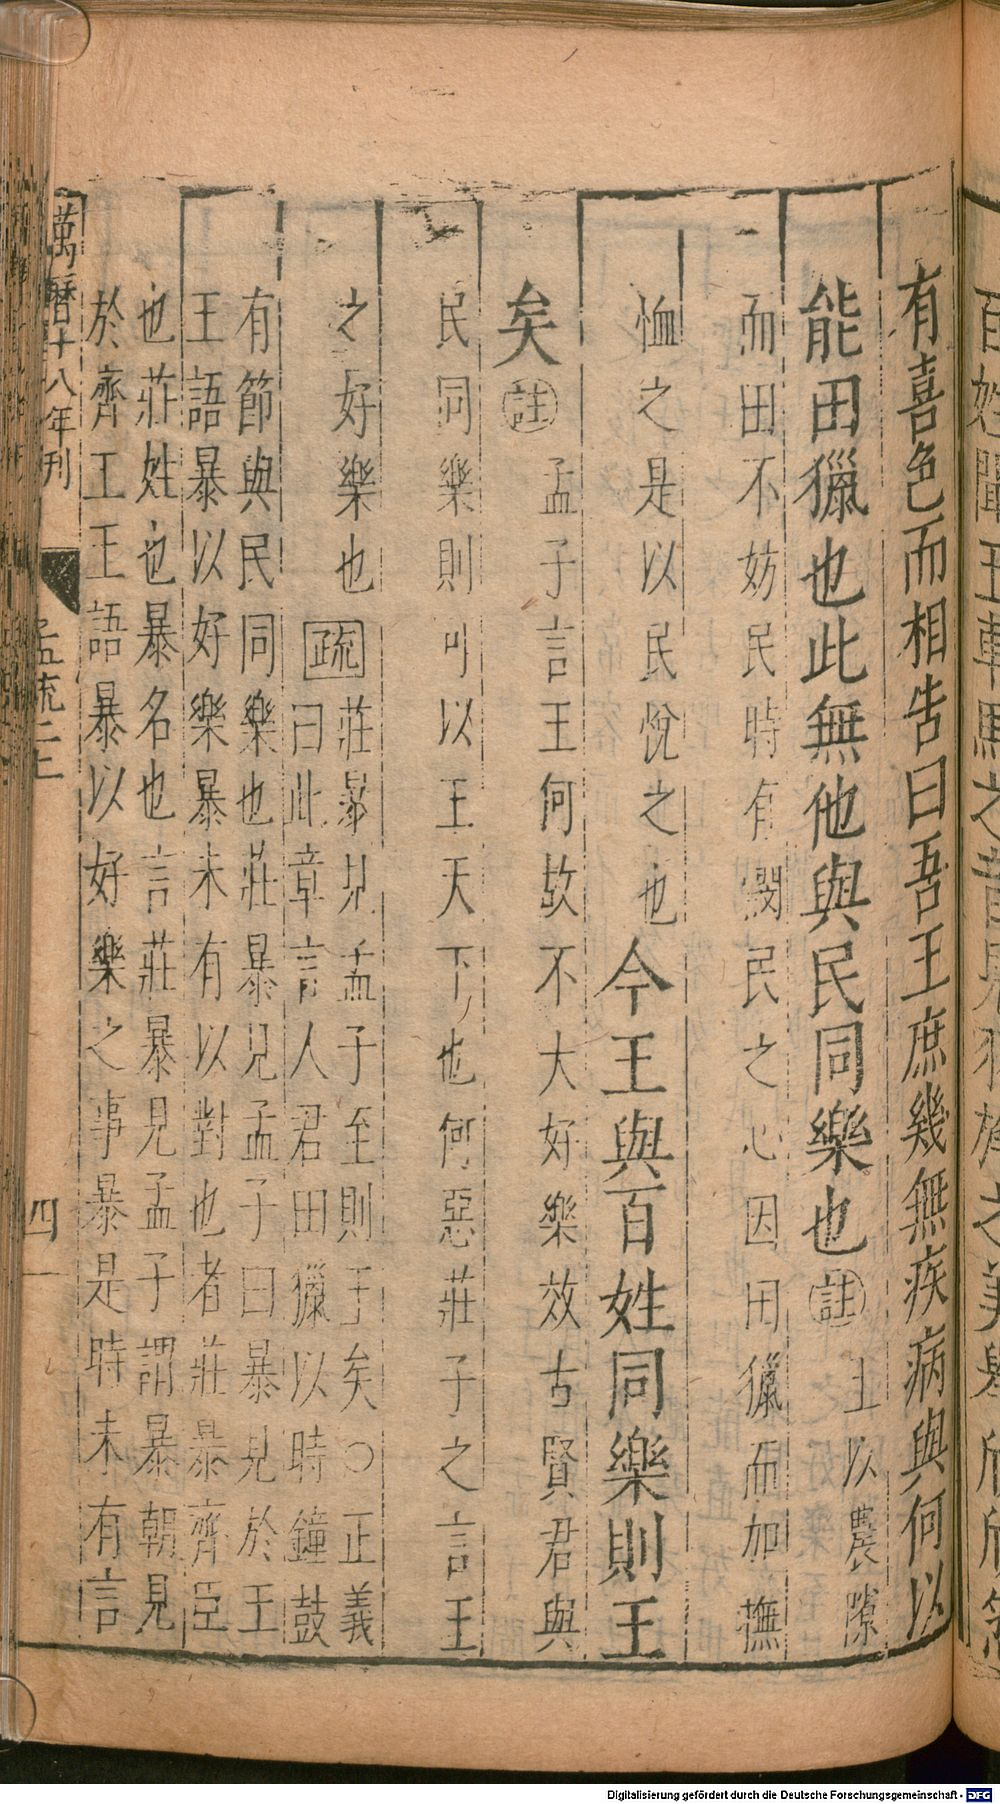 百姓聞王車馬之音見羽旄之美舉欣欣然
有喜色而相告曰吾王庶幾無疾病與何以
能田獵也此無他與民同樂也註王以農隙
而田不妨民時有閔民之心因田獵而加撫
恤之是以民悅之也今王與百姓同樂則王
矣註孟子言王何故不大好樂效古賢君與
民同樂則可以王天下也何惡莊子之言王
之好樂也疏莊暴見孟子至則王矣○正義
曰此章言人君田獵以時鐘鼓
有節與民同樂也莊暴見孟子曰暴見於王
王語暴以好樂暴未有以對也者莊暴齊臣
也莊姓也暴名也言莊暴見孟子謂暴朝見
於齊王王語暴以好樂之事暴是時未有言
萬曆十八年刊 孟疏二上 四
Digitalisierung gefördert durch die Deutsche Forschungsgemeinschaft - DFG